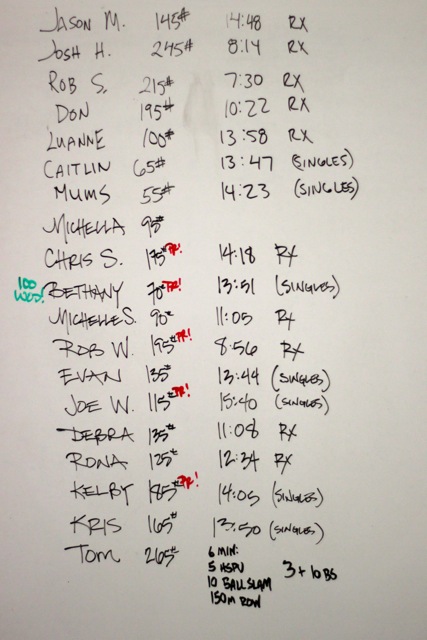 JASON M. 145# 14:48 RX
JOSH H. 245# 8:14 RX
ROB S. 215# 7:30 RX
DON 195# 10:22 RX
LUANNE 100# 13:58 RX
CAITLIN 65# 13:47 (SINGLES)
MUMS 55# 14:23 (SINGLES)
MICHELLA 95#
CHRIS S. 175# PR! 14:18 RX
100 WODS! BETHANY 70# PR! 13:51 (SINGLES)
MICHELLE S. 90# 11:05 RX
ROB W. 195# PR! 8:56 RX
EVAN 135# 13:44 (SINGLES)
JOE W. 115# PR! 15:40 (SINGLES)
DEBRA 135# 11:08 RX
RONA 125# 12:34 RX
KELBY 185# PR! 14:05 (SINGLES)
KRIS 165# 13:50 (SINGLES)
TOM 265#
6 MIN:
5 HSPU
10 BALL SLAM 3 + 10 BS
150M ROW